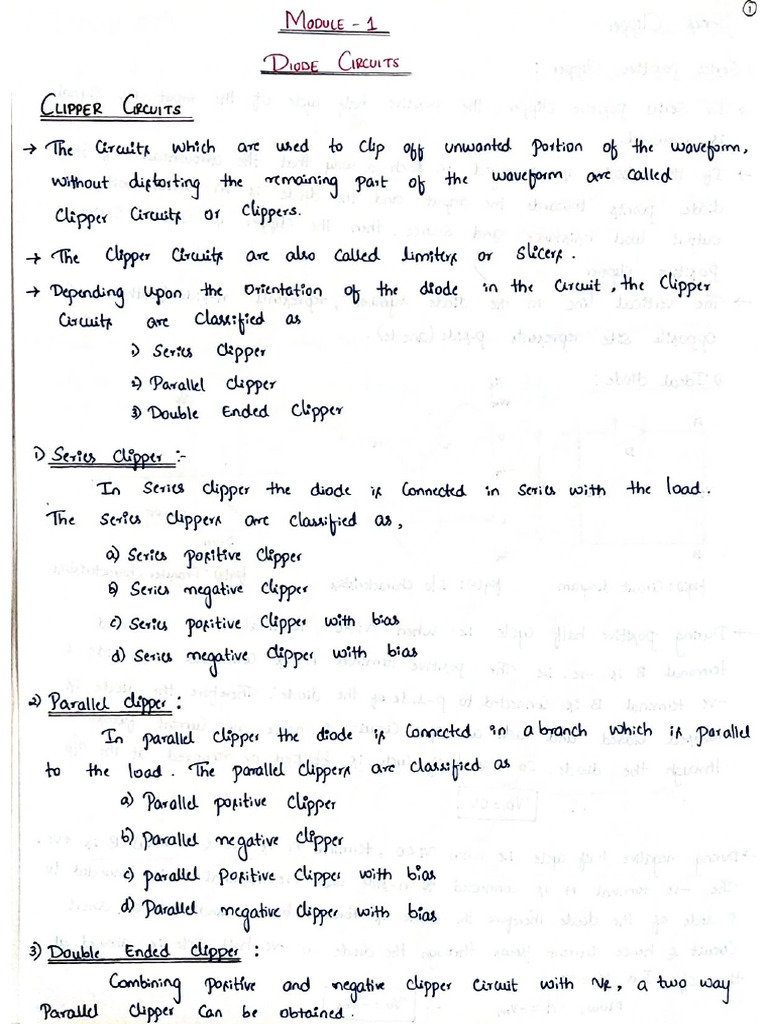 1
MODULE - 1
DIODE CIRCUITS
CLIPPER CIRCUITS
→ The Circuits which are used to clip off unwanted portion of the waveform,
without distorting the remaining part of the waveform are called
Clipper Circuits or Clippers.
→ The Clipper Circuits are also called limiters or slicers.
→ Depending upon the Orientation of the diode in the circuit, the Clipper
Circuits are Classified as
1) Series Clipper
2) Parallel Clipper
3) Double Ended Clipper
1) Series Clipper :-
In Series clipper the diode is Connected in series with the load.
The Series Clippers are classified as,
a) Series positive Clipper
b) Series negative Clipper
c) Series positive Clipper with bias
d) Series negative clipper with bias
2) Parallel clipper :
In parallel clipper the diode is Connected in a branch which is parallel
to the load. The parallel Clippers are classified as
a) Parallel positive Clipper
b) Parallel negative Clipper
c) parallel Positive Clipper with bias
d) Parallel negative Clipper with bias
3) Double Ended Clipper :
Combining Positive and negative clipper Circuit with VR, a two way
Parallel clipper Can be obtained.